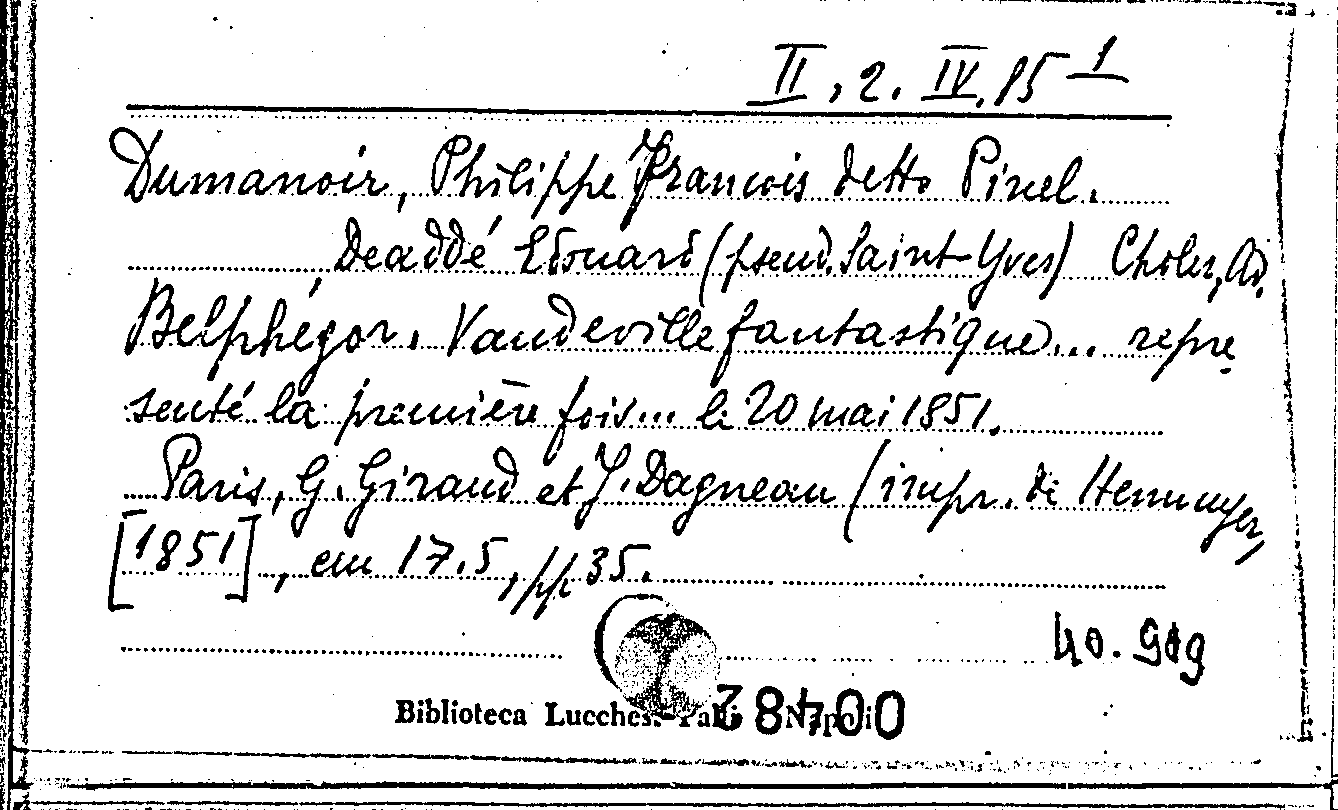 II, 2. IV. 15 1
Dumanoir, Philippe François detto Pinel.
Deaddé Edouard (pseud. Saint-Yves) Choler, Ad.
Belphégor. Vaudeville fantastique... repre
senté la première fois... le 20 mai 1851.
Paris, G. Giraud et J. Dagneau (impr. di Hennuyer,
[1851], cm 17.5, pp. 35.
40. 909
Biblioteca Lucchesi-Palli Napoli